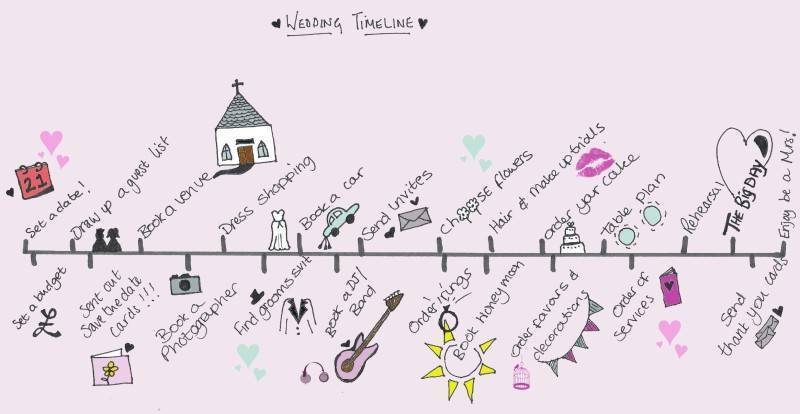 WEDDING TIMELINE
21
Set a date!
Set a budget
Draw up a guest list
Sent out
save the date
cards!!!
Book a venue
Book a
Photographer
Dress shopping
Find grooms suit
Book a car
Book a DJ/
Band
Send Invites
Order rings
Choose flowers
Book Honeymoon
Hair & Make up trialls
Order favours &
decorations
Order your cake
Table plan
Order of
Services
Rehearsal
THE BIG DAY
Send
thank you cards
Enjoy be a Mrs!